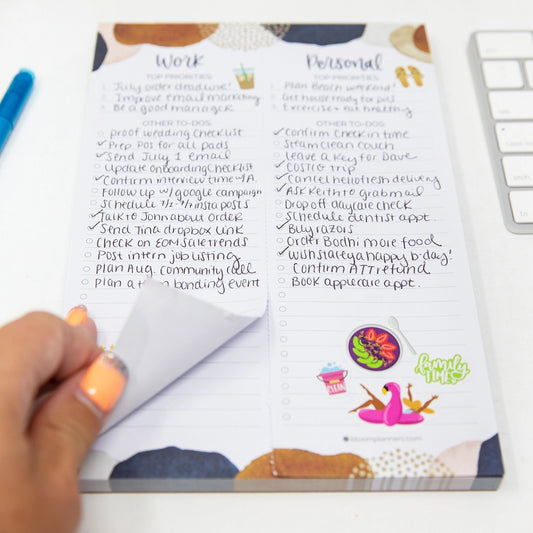 Work
TOP PRIORITIES
1. July order deadline!
2. Improve email marketing
3. Be a good manager
OTHER TO-DOS:
proof wedding checklist
Prep POs for all pads
Send July 1 email
Update onboarding checklist
Confirm interview time w/A.
Follow up w/google campaign
Schedule 7/2-7/9 insta posts
Talk to John about order
Send Tina dropbox link
Check on EOM sale trends
Post intern job listing
Plan Aug. community call
Plan a team bonding event
Personal
TOP PRIORITIES
1. Plan Beach weekend!
2. Get house ready for pics
3. Exercise + eat healthy
OTHER TO-DOS:
Confirm Check in time
Steam clean couch
Leave a key for Dave
COSTCO trip
Cancel hellofresh delivery
Ask Keith to grab mail
Drop off daycare check
Schedule dentist appt.
Buy razors
Order Bodhi more food
Wish staley a happy b-day!
Confirm ATT refund
Book applecare appt.
CLEAN
family
TIMES
bloomplanners.com